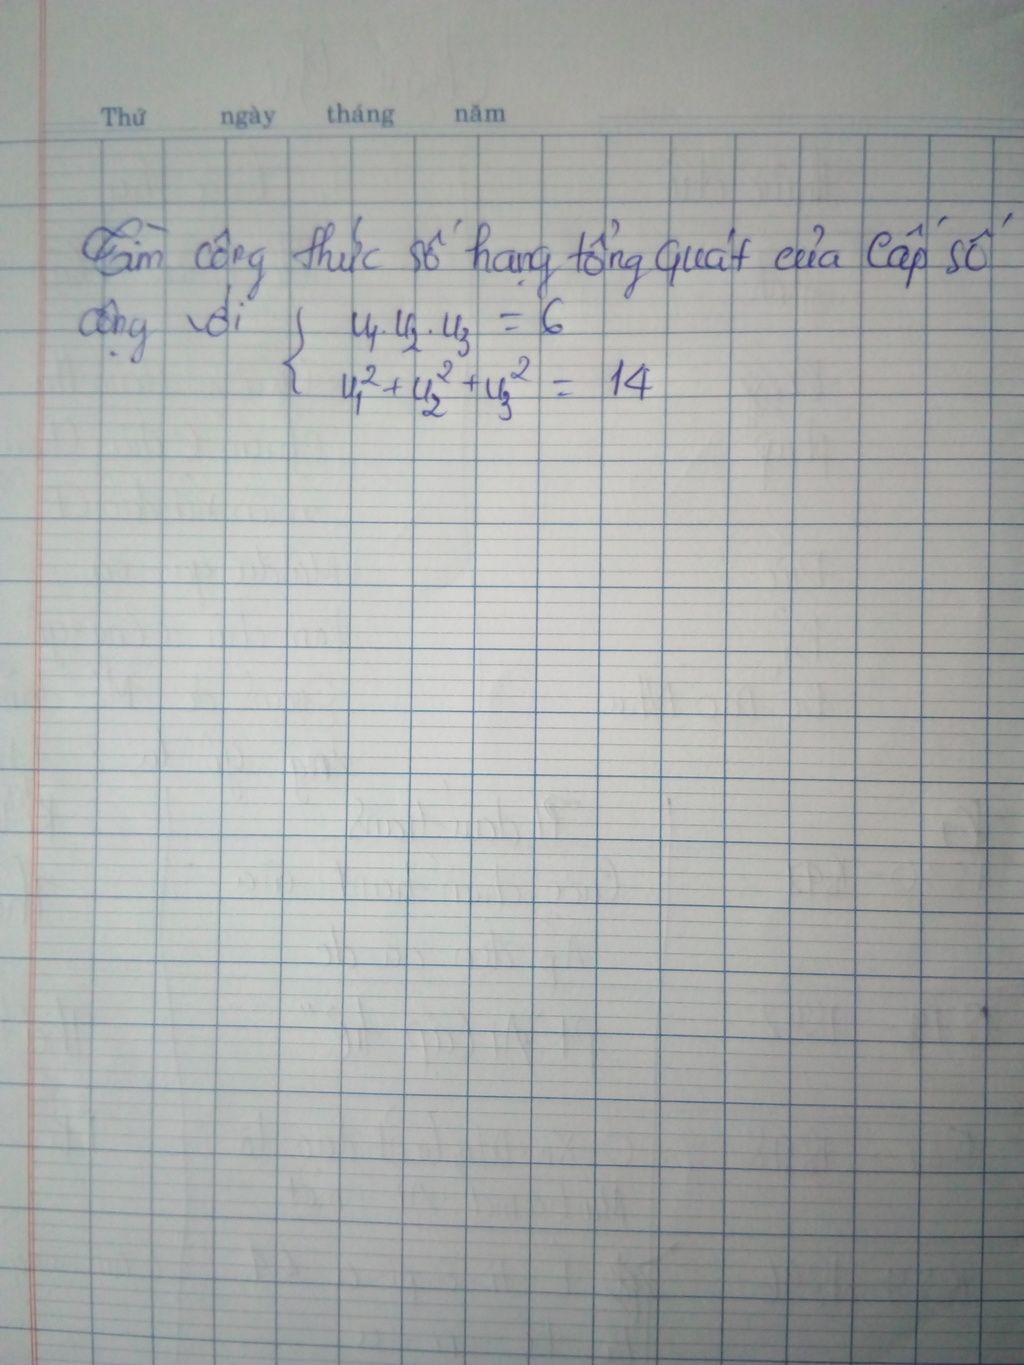 Thứ ngày tháng năm
Tìm công thức số hạng tổng quát của cấp số
cộng với { u₁.u₂.u₃ = 6
u₁² + u₂² + u₃² = 14